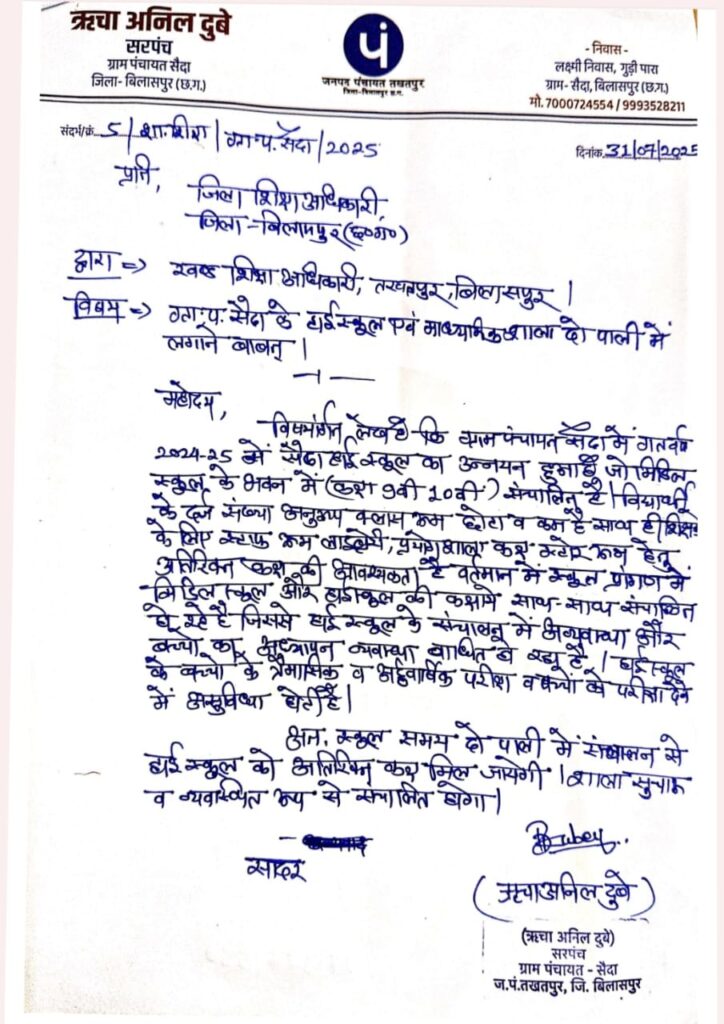 ऋचा अनिल दुबे
सरपंच
ग्राम पंचायत सैदा
जिला- बिलासपुर (छ.ग.)
पं
जनपद पंचायत तखतपुर
जिला-बिलासपुर छ.ग.
- निवास -
लक्ष्मी निवास, गुड़ी पारा
ग्राम- सैदा, बिलासपुर (छ.ग.)
मो. 7000724554 / 9993528211
संदर्भ/क्रं. 5/शा.शिक्षा/ग्रा.पं.सैदा/2025
दिनांक 31/07/2025
प्रति,
जिला शिक्षा अधिकारी,
जिला - बिलासपुर (छ०ग०)
द्वारा => खण्ड शिक्षा अधिकारी, तखतपुर, बिलासपुर ।
विषय => ग्रा.पं. सैदा के हाई स्कूल एवं माध्यमिक शाला दो पाली में
लगाने बाबत् ।
महोदय,
विषयांर्गत लेख है कि ग्राम पंचायत सैदा में गतवर्ष
2024-25 में सैदा हाई स्कूल का उन्नयन हुआ है जो मिडिल
स्कूल के भवन में (कक्षा 9वी 10वी) संचालित है। विद्यार्थी
के दर्ज संख्या अनुरूप क्लास रूम छोटा व कम है साथ ही शिक्षक
के लिए स्टाफ रूम लाइब्रेरी, प्रयोगशाला कक्ष स्टोर रूम हेतु
अतिरिक्त कक्ष की आवश्यकता है वर्तमान में स्कूल प्रांगण में
मिडिल स्कूल और हाईस्कूल की कक्षायें साथ-साथ संचालित
हो रहे है जिससे हाई स्कूल के संचालन में अव्यवस्था और
बच्चों का अध्यापन व्यवस्था बाधित हो रहा है । हाई स्कूल
के बच्चों के त्रैमासिक व अर्द्धवार्षिक परीक्षा व बच्चों को परीक्षा देने
में असुविधा होती है।
अतः स्कूल समय दो पाली में संचालन से
हाई स्कूल को अतिरिक्त कक्ष मिल जायेगी । शाला सुचारू
व व्यवस्थित रूप से संचालित होगा।
सादर
(ऋचा अनिल दुबे)
(ऋचा अनिल दुबे)
सरपंच
ग्राम पंचायत - सैदा
ज.पं.तखतपुर, जि. बिलासपुर